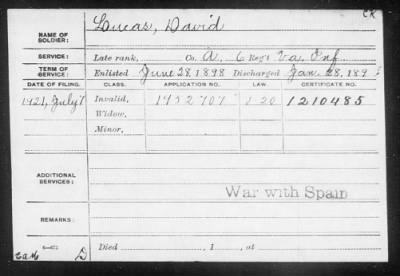 CK
NAME OF SOLDIER: Lucas, David
SERVICE: Late rank, Co. A, 6 Reg't Va. Inf.
TERM OF SERVICE: Enlisted June 28, 1898 Discharged Jan. 28, 189
DATE OF FILING. CLASS. APPLICATION NO. LAW. CERTIFICATE NO.
1921, July 7 Invalid, 120 1210485
Widow,
Minor,
ADDITIONAL SERVICES:
War with Spain
REMARKS:
Died , 1 , at
D